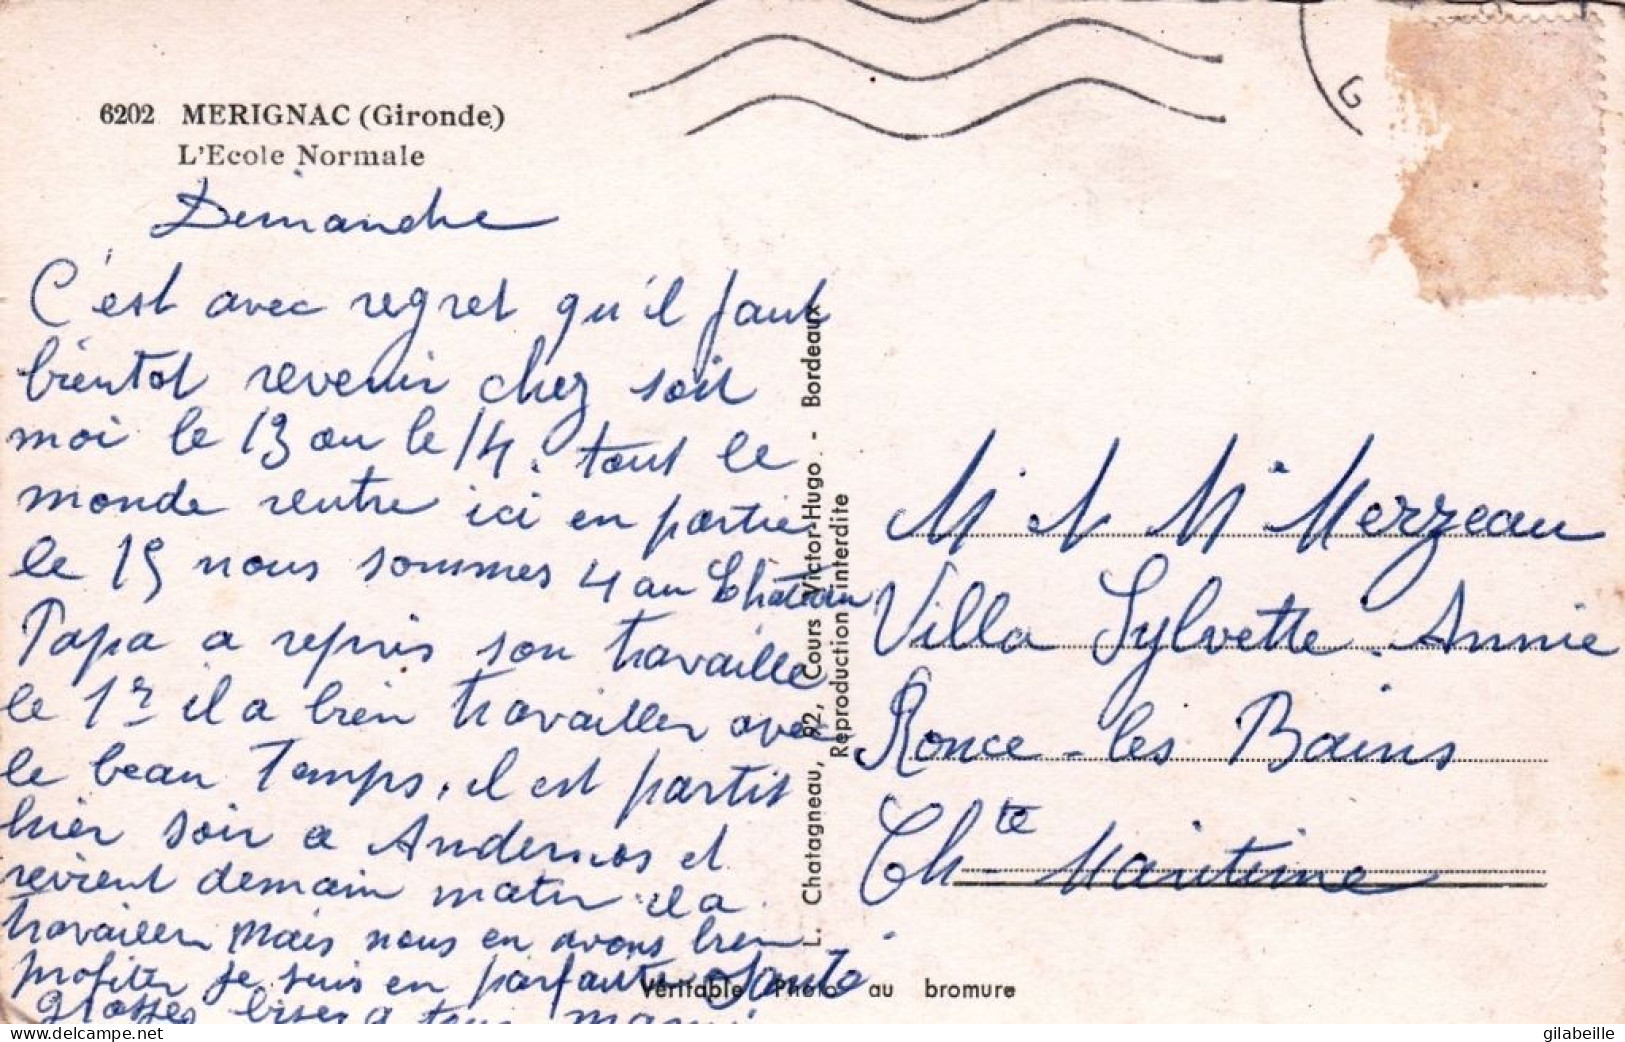 6202 MERIGNAC (Gironde)
L'Ecole Normale
Dimanche
C'est avec regret qu'il faut
bientot revenir chez soit
moi le 13 ou le 14. tout le
monde rentre ici en partie
le 15 nous sommes 4 au Château
Papa a repris son travaille
le 1r il a bien travailler avec
le beau Temps. il est partit
hier soir a Andernos et
revient demain matin il a
travailler mais nous en avons bien
profiter je suis en parfaite santé
grosses bises a tous mami
L. Chatagneau, 92, Cours Victor-Hugo - Bordeaux
Reproduction interdite
Véritable Photo au bromure
G
M et Me Merzeau
Villa Sylvette. Annie
Ronce-les Bains
Chte Maritime
delcampe.net
gilabeille